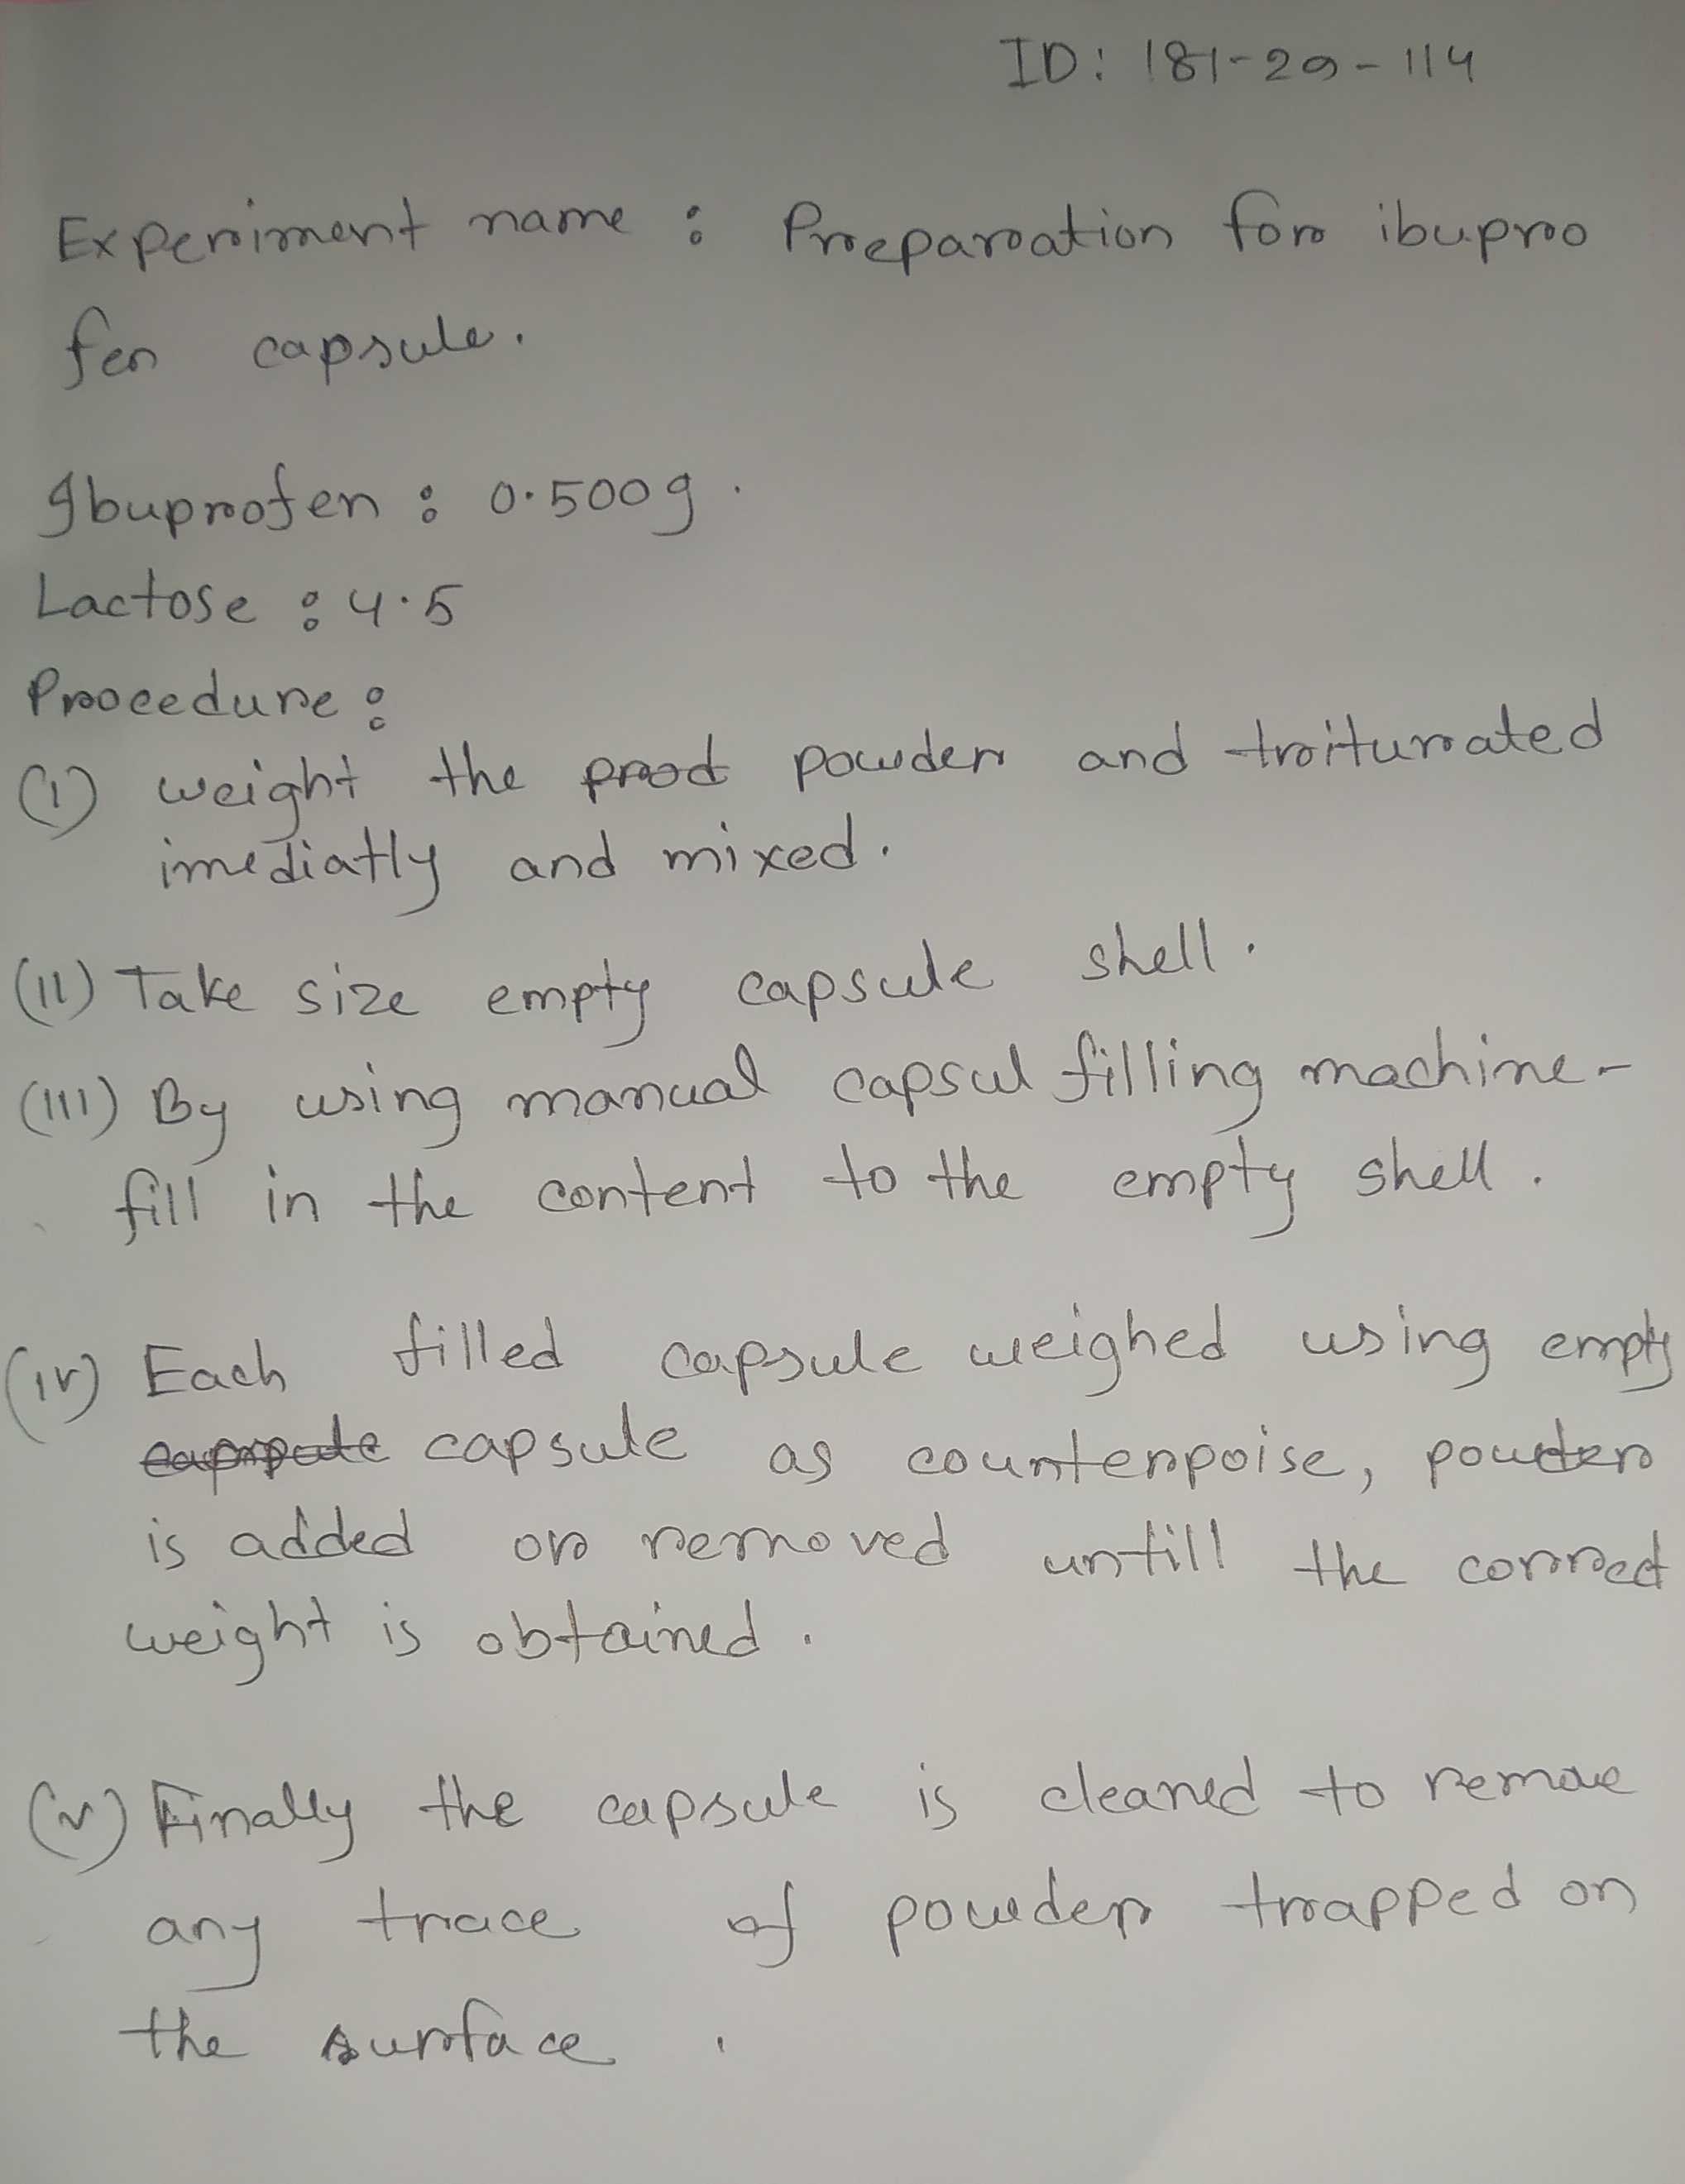 ID: 181-29-114
Experiment name : Preparation for ibupro
fen capsule.
Ibuprofen : 0.500g.
Lactose : 4.5
Procedure :
(i) weight the prod powder and triturated
imediatly and mixed.
(ii) Take size empty capsule shell.
(iii) By using manual capsul filling machine-
fill in the content to the empty shell.
(iv) Each filled capsule weighed using empty
capsule as counterpoise, powder
is added or removed untill the correct
weight is obtained.
(v) Finally the capsule is cleaned to remove
any trace of powder trapped on
the surface.